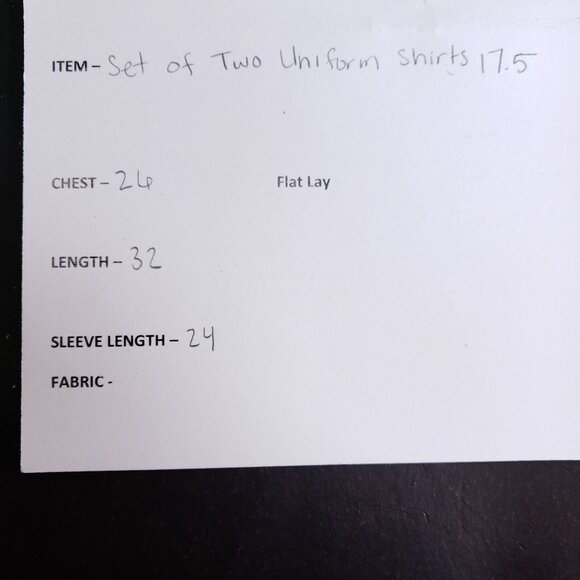 ITEM – Set of Two Uniform Shirts 17.5
CHEST – 26 Flat Lay
LENGTH – 32
SLEEVE LENGTH – 24
FABRIC -